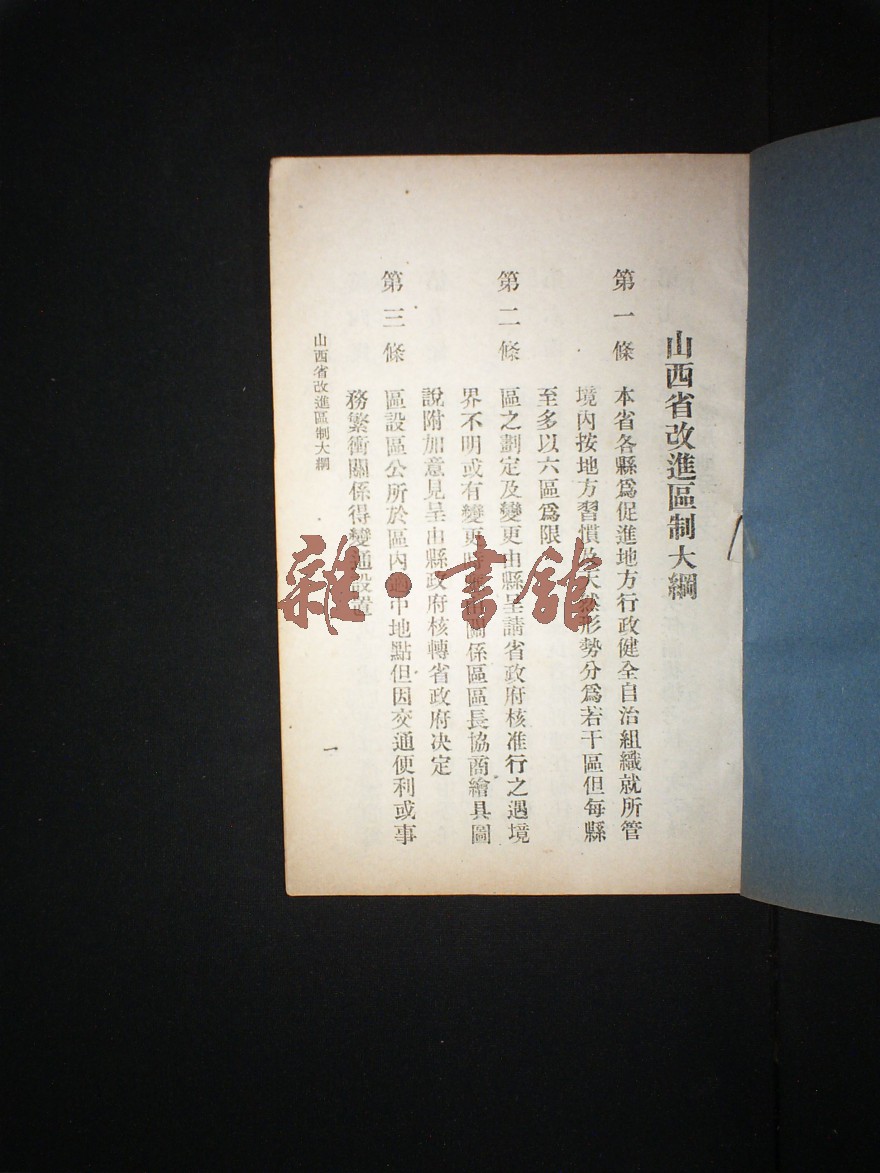 山西省改進區制大綱
第一條 本省各縣爲促進地方行政健全自治組織就所管
境內按地方習慣及天然形勢分爲若干區但每縣
至多以六區爲限
第二條 區之劃定及變更由縣呈請省政府核准行之遇境
界不明或有變更時 關係區區長協商繪具圖
說附加意見呈由縣政府核轉省政府決定
第三條 區設區公所於區內適中地點但因交通便利或事
務繁衝關係得變通設置
山西省改進區制大綱
一
雜·書館